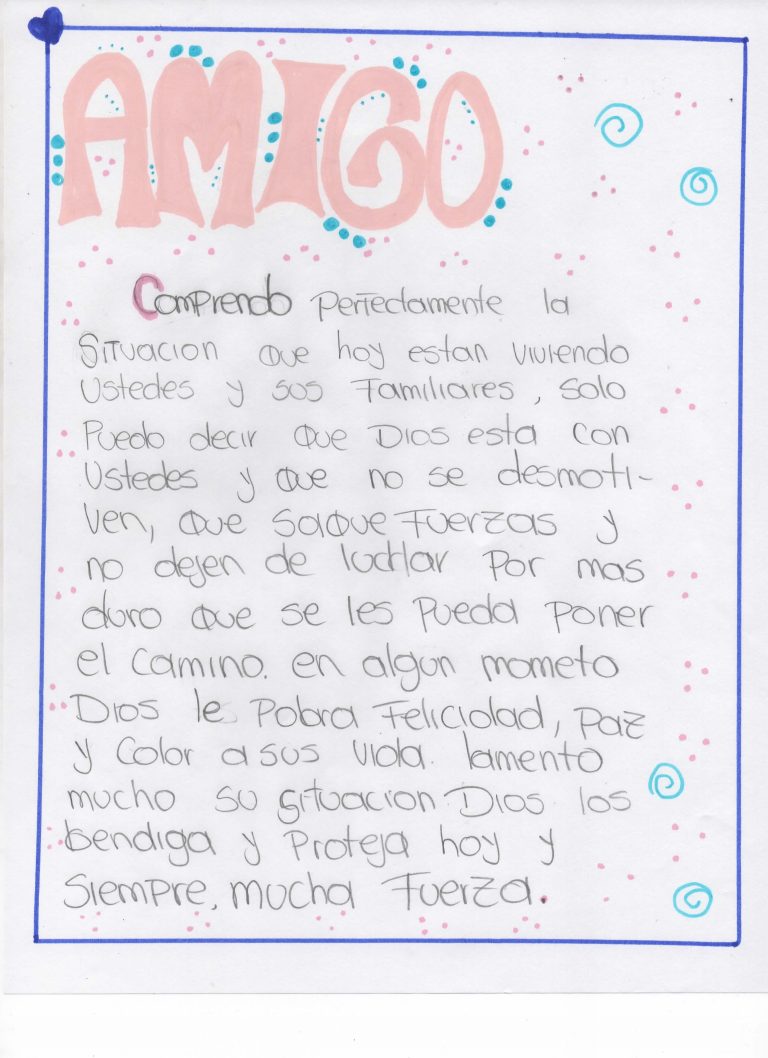 AMIGO
Comprendo perfectamente la
situacion que hoy estan viviendo
ustedes y sus familiares, solo
puedo decir que Dios esta con
ustedes y que no se desmoti-
ven, que saque fuerzas y
no dejen de luchar por mas
duro que se les pueda poner
el camino. en algun mometo
Dios le pobra felicidad, paz
y color a sus vida. lamento
mucho su situacion. Dios los
bendiga y proteja hoy y
siempre, mucha fuerza.